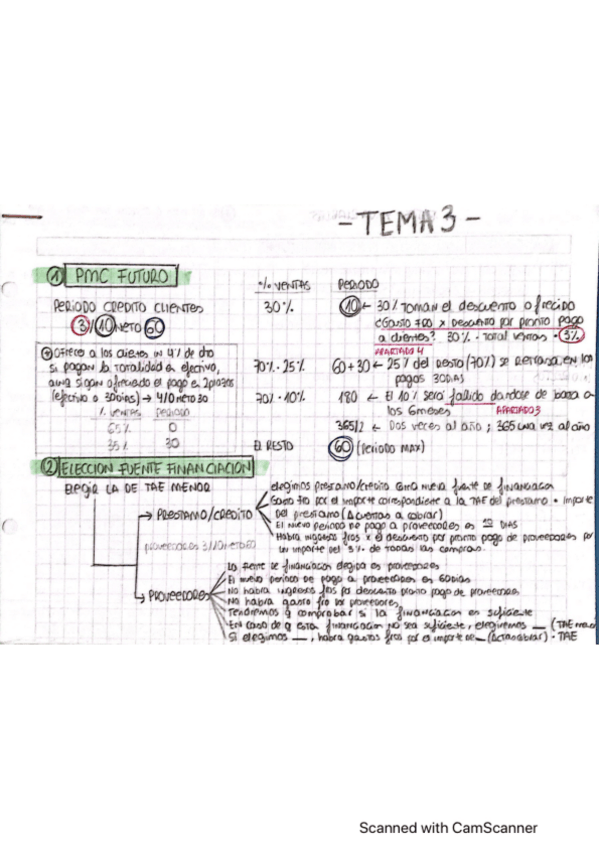 - TEMA 3 -
① PMC FUTURO
% VENTAS PERIODO
PERIODO CREDITO CLIENTES 30% 10 ← 30% TOMAN el DESCUENTO OFRECIDO
3/10 NETO 60 ¿Gasto fro x Descuento por pronto pago
a clientes? 30% · Total ventas · 3%
APARTADO 4
OFRECE a los clientes un 4% de dto
si pagan la totalidad en efectivo,
(efectivo o 30dias) → 4/0 NETO 30
% VENTAS PERIODO
65% 0
35% 30
70% · 25% 60 + 30 ← 25% del RESTO (70%) se RETRASA EN los
pagos 30DIAS
70% · 10% 180 ← El 10% será fallido dandose de baja a
los 6 meses APARTADO 3
365/2 ← Dos veces al año ; 365 una vez al año
EL RESTO 60 (PERIODO MAX)
② ELECCION FUENTE FINANCIACION
Elegir LA DE TAE MENOR
→ PRESTAMO/CREDITO
elegimos prestamo/credito como nueva fuente de financiacion
Gasto fro por el importe correspondiente a la TAE del prestamo · importe
Del prestamo (Δ cuentas a cobrar)
El nuevo periodo de pago a proveedores es 10 DIAS
Habrá ingresos fros x el descuento por pronto pago de proveedores por
un importe del 3% de todas las compras.
proveedores 3/10 NETO 60
→ PROVEEDORES
La fuente de financiacion elegida es proveedores
El nuevo periodo de pago a proveedores es 60dias
No habrá ingresos fros por descuento pronto pago de proveedores
No habrá gasto fro por proveedores
Tendremos q comprobar si la financiacion es suficiente
En caso de q esta financiacion no sea suficiente, elegiremos __ (TAE
Si elegimos __, habra gastos fros por el importe de __ · TAE
Scanned with CamScanner